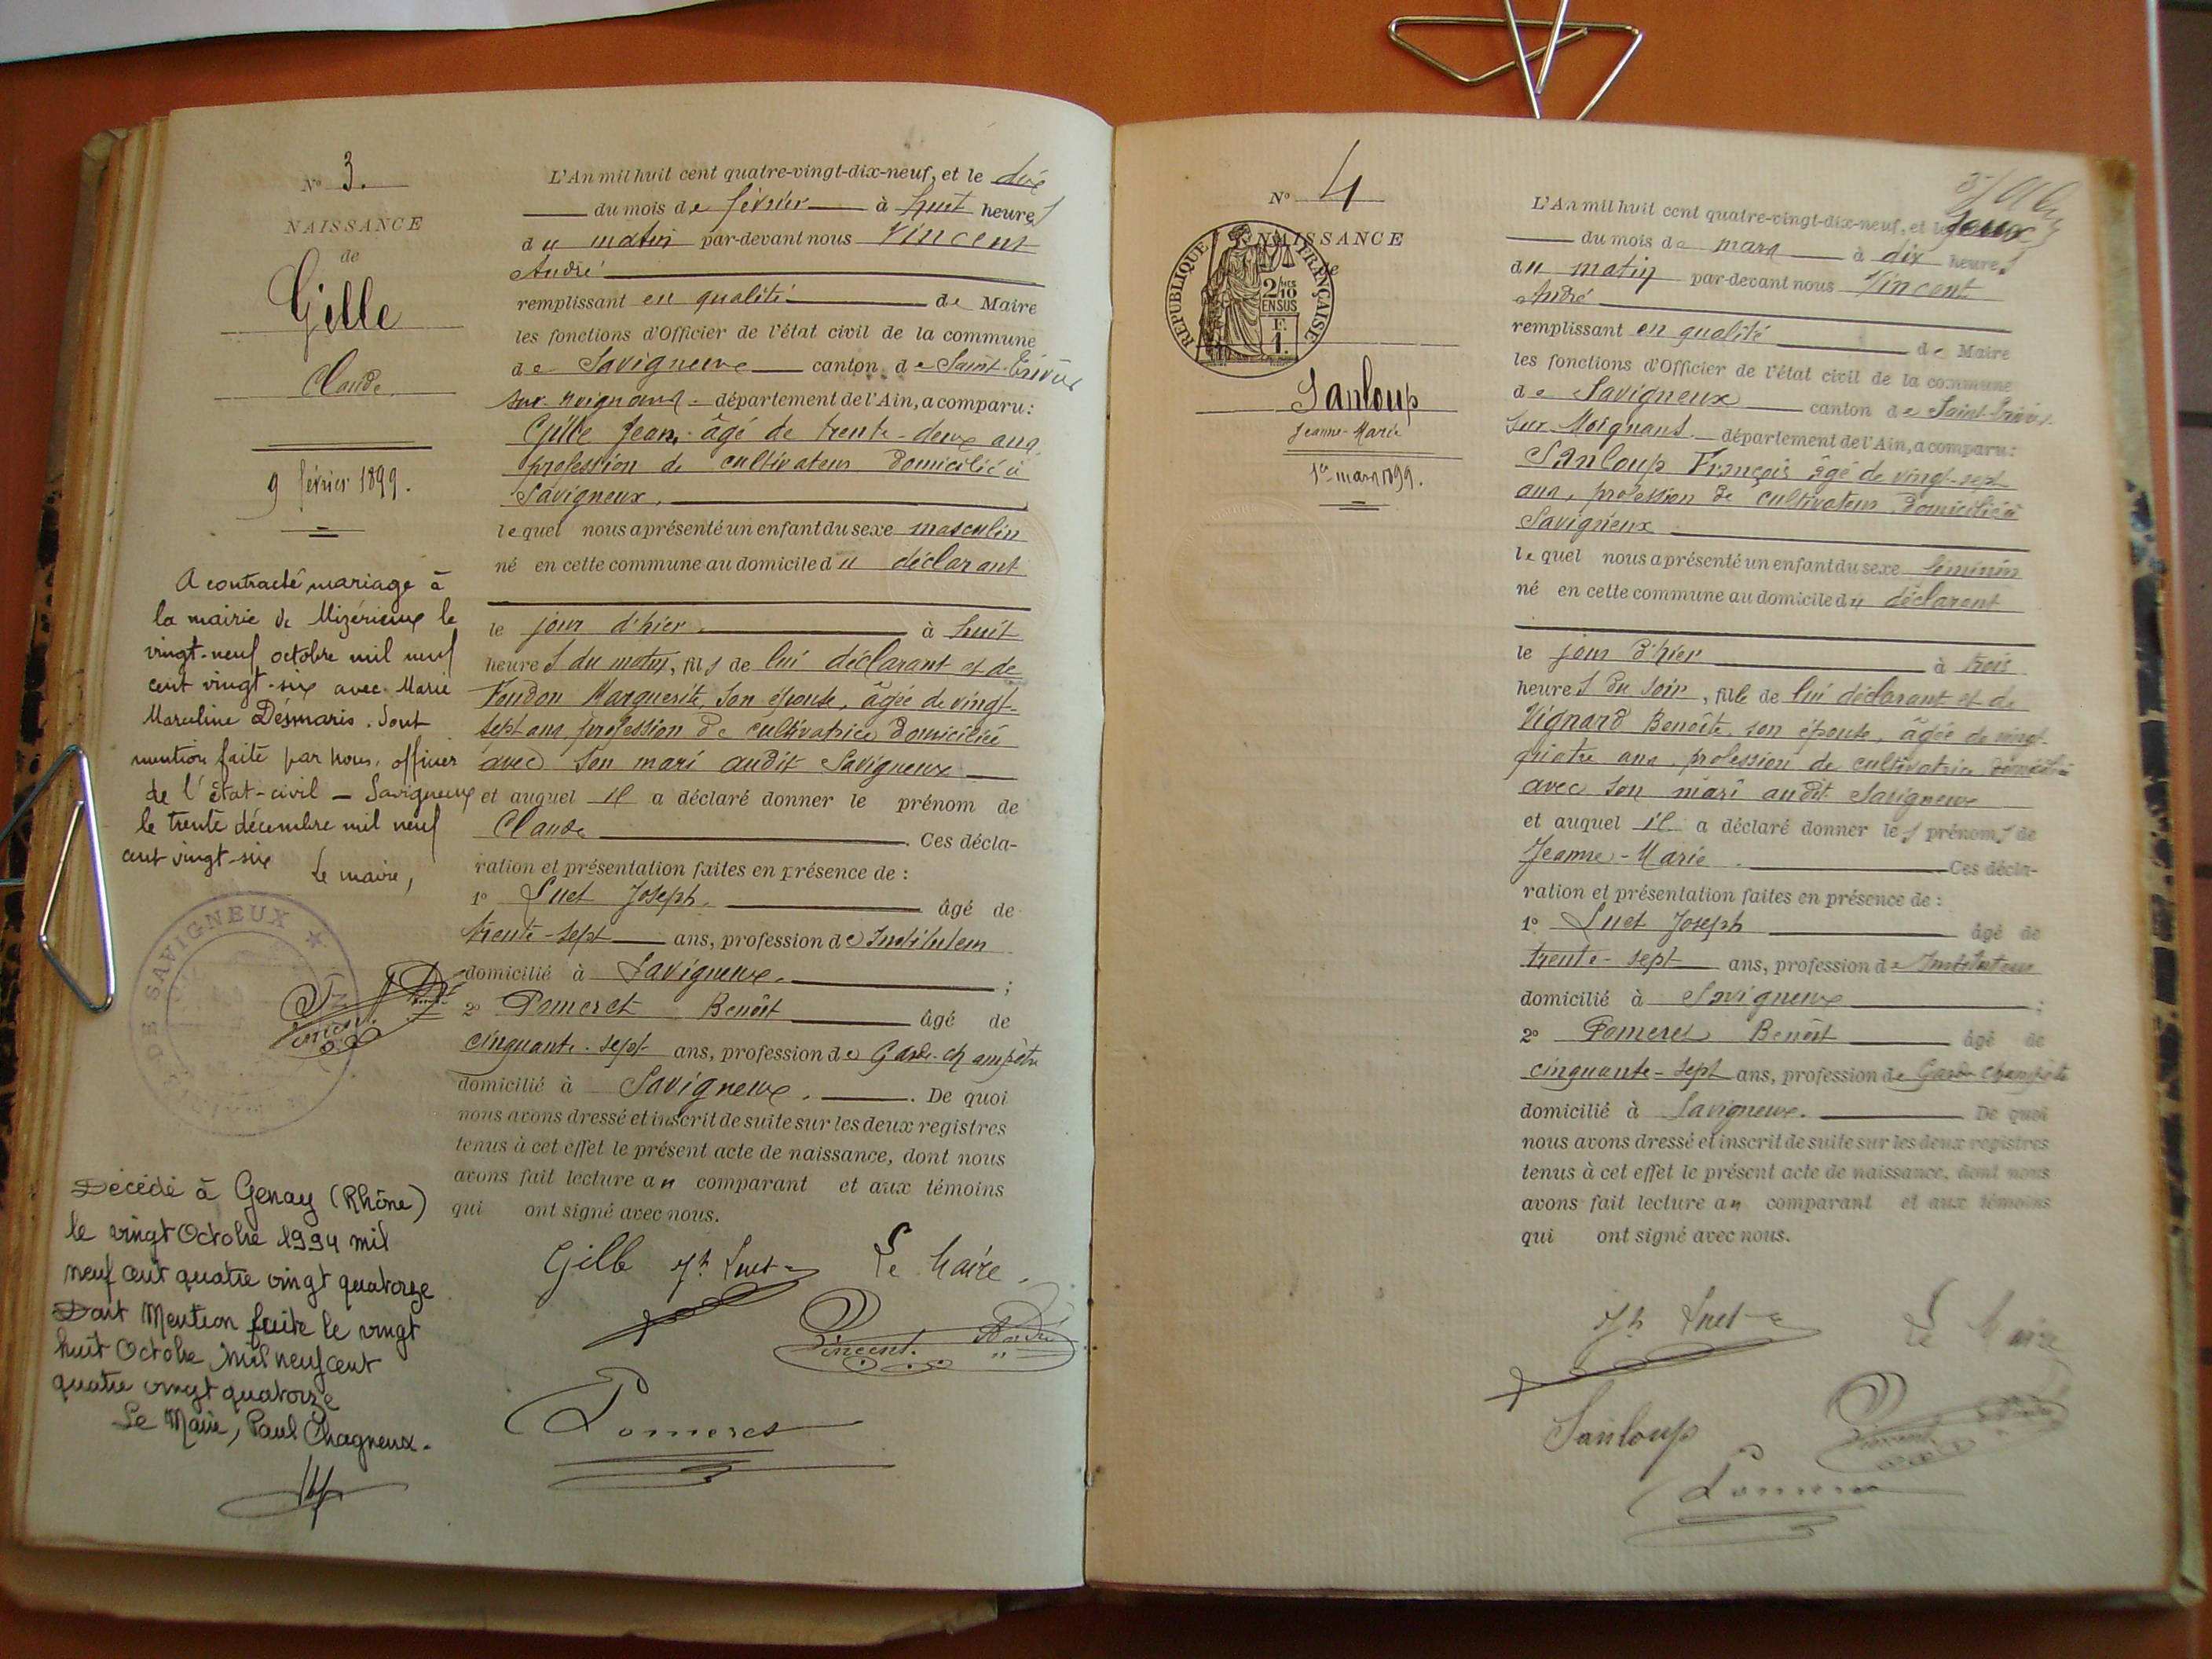 Nº 3.
NAISSANCE
de
Gille
Claude
9 février 1899.
A contracté mariage à
la mairie de Mizérieux le
vingt-neuf octobre mil neuf
cent vingt-six avec Marie
Marceline Désmaris. Dont
mention faite par nous, officier
de l'état-civil — Savigneux
le trente décembre mil neuf
cent vingt-six
Le maire,
DE SAVIGNEUX
Vincent
Décédé à Genay (Rhône)
le vingt Octobre 1994 mil
neuf cent quatre vingt quatorze
Dont Mention faite le vingt
huit Octobre mil neuf cent
quatre vingt quatorze
Le Maire, Paul Chagneux.
L'An mil huit cent quatre-vingt-dix-neuf, et le dix
du mois de février à huit heures
du matin par-devant nous Vincent
André
remplissant en qualité de Maire
les fonctions d'Officier de l'état civil de la commune
de Savigneux canton de Saint-Trivier
sur Moignans département de l'Ain, a comparu:
Gille Jean, âgé de trente-deux ans,
profession de cultivateur domicilié à
Savigneux,
lequel nous a présenté un enfant du sexe masculin
né en cette commune au domicile du déclarant
le jour d'hier à huit
heures du matin, fils de lui déclarant et de
Foudon Marguerite, son épouse, âgée de vingt-
sept ans, profession de cultivatrice domiciliée
avec son mari audit Savigneux
et auquel il a déclaré donner le prénom de
Claude. Ces décla-
ration et présentation faites en présence de :
1º Luet Joseph, âgé de
trente-sept ans, profession de Instituteur
domicilié à Savigneux. ;
2º Pomeret Benoît âgé de
cinquante-sept ans, profession de Garde-champêtre
domicilié à Savigneux. De quoi
nous avons dressé et inscrit de suite sur les deux registres
tenus à cet effet le présent acte de naissance, dont nous
avons fait lecture au comparant et aux témoins
qui ont signé avec nous.
Gille Jh Luet Le Maire,
Vincent André
Pomeret
Nº 4
NAISSANCE
de
REPUBLIQUE FRANÇAISE
2/10 EN SUS
F. 1.
Sanloup
Jeanne-Marie
1er mars 1899.
L'An mil huit cent quatre-vingt-dix-neuf, et le deux
du mois de mars à dix heures
du matin par-devant nous Vincent
André
remplissant en qualité de Maire
les fonctions d'Officier de l'état civil de la commune
de Savigneux canton de Saint-Trivier
sur Moignans. département de l'Ain, a comparu:
Sanloup François âgé de vingt-sept
ans, profession de cultivateur domicilié à
Savigneux
lequel nous a présenté un enfant du sexe féminin
né en cette commune au domicile du déclarant
le jour d'hier à trois
heures du soir, fille de lui déclarant et de
Vignard Benoîte, son épouse, âgée de vingt-
quatre ans, profession de cultivatrice domiciliée
avec son mari audit Savigneux
et auquel il a déclaré donner les prénoms de
Jeanne-Marie. Ces décla-
ration et présentation faites en présence de :
1º Luet Joseph âgé de
trente-sept ans, profession de Instituteur
domicilié à Savigneux ;
2º Pomeret Benoît âgé de
cinquante-sept ans, profession de Garde champêtre
domicilié à Savigneux. De quoi
nous avons dressé et inscrit de suite sur les deux registres
tenus à cet effet le présent acte de naissance, dont nous
avons fait lecture au comparant et aux témoins
qui ont signé avec nous.
Jh Luet Le Maire
Sanloup Vincent André
Pomeret